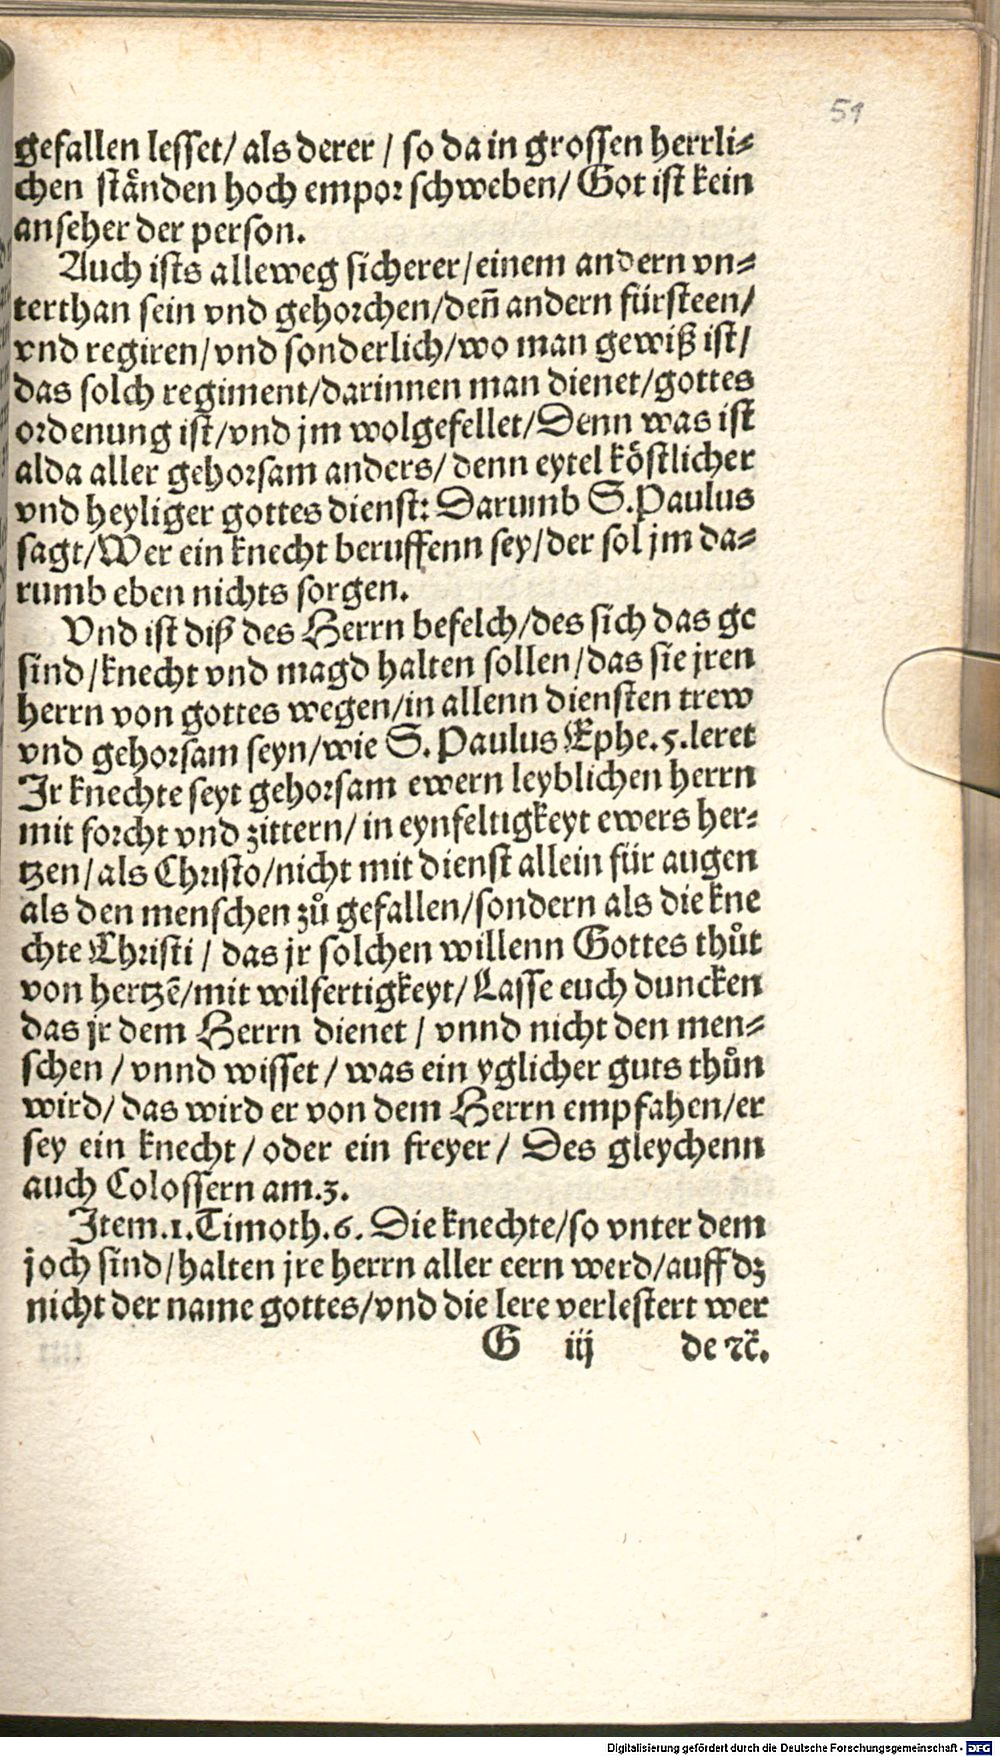 51
gefallen lesset/ als derer / so da in grossen herrli⸗
chen stånden hoch empor schweben/ Got ist kein
anseher der person.
Auch ists alleweg sicherer/einem andern vn⸗
terthan sein vnd gehorchen/den̄ andern fürsteen/
vnd regiren/vnd sonderlich/wo man gewiß ist/
das solch regiment/darinnen man dienet/gottes
ordenung ist/vnd jm wolgefellet/Denn was ist
alda aller gehorsam anders/denn eytel kőstlicher
vnd heyliger gottes dienst: Darumb S.Paulus
sagt/Wer ein knecht beruffenn sey/der sol jm da⸗
rumb eben nichts sorgen.
Vnd ist diß des Herrn befelch/des sich das ge
sind/knecht vnd magd halten sollen/das sie jren
herrn von gottes wegen/in allenn diensten trew
vnd gehorsam seyn/wie S. Paulus Ephe.5.leret
Jr knechte seyt gehorsam ewern leyblichen herrn
mit forcht vnd zittern/ in eynfeltigkeyt ewers her⸗
tzen/als Christo/nicht mit dienst allein für augen
als den menschen zů gefallen/sondern als die kne
chte Christi / das jr solchen willenn Gottes thůt
von hertzē/mit wilfertigkeyt/ Lasse euch duncken
das jr dem Herrn dienet / vnnd nicht den men⸗
schen / vnnd wisset / was ein yglicher guts thůn
wird/ das wird er von dem Herrn empfahen/er
sey ein knecht/ oder ein freyer/ Des gleychenn
auch Colossern am.3.
Jtem.1.Timoth.6. Die knechte/so vnter dem
joch sind/halten jre herrn aller eern werd/auff dz
nicht der name gottes/vnd die lere verlestert wer
G iij de ꝛc̄.
Digitalisierung gefördert durch die Deutsche Forschungsgemeinschaft - DFG